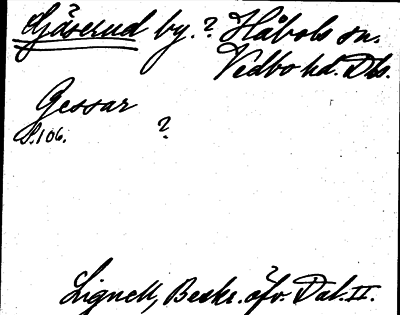 Gäserud by. ? Håbols sn.
Vedbo hd. Dls.
Gessar
S. 106. ?
Lignell, Beskr. öfv. Dal. II.